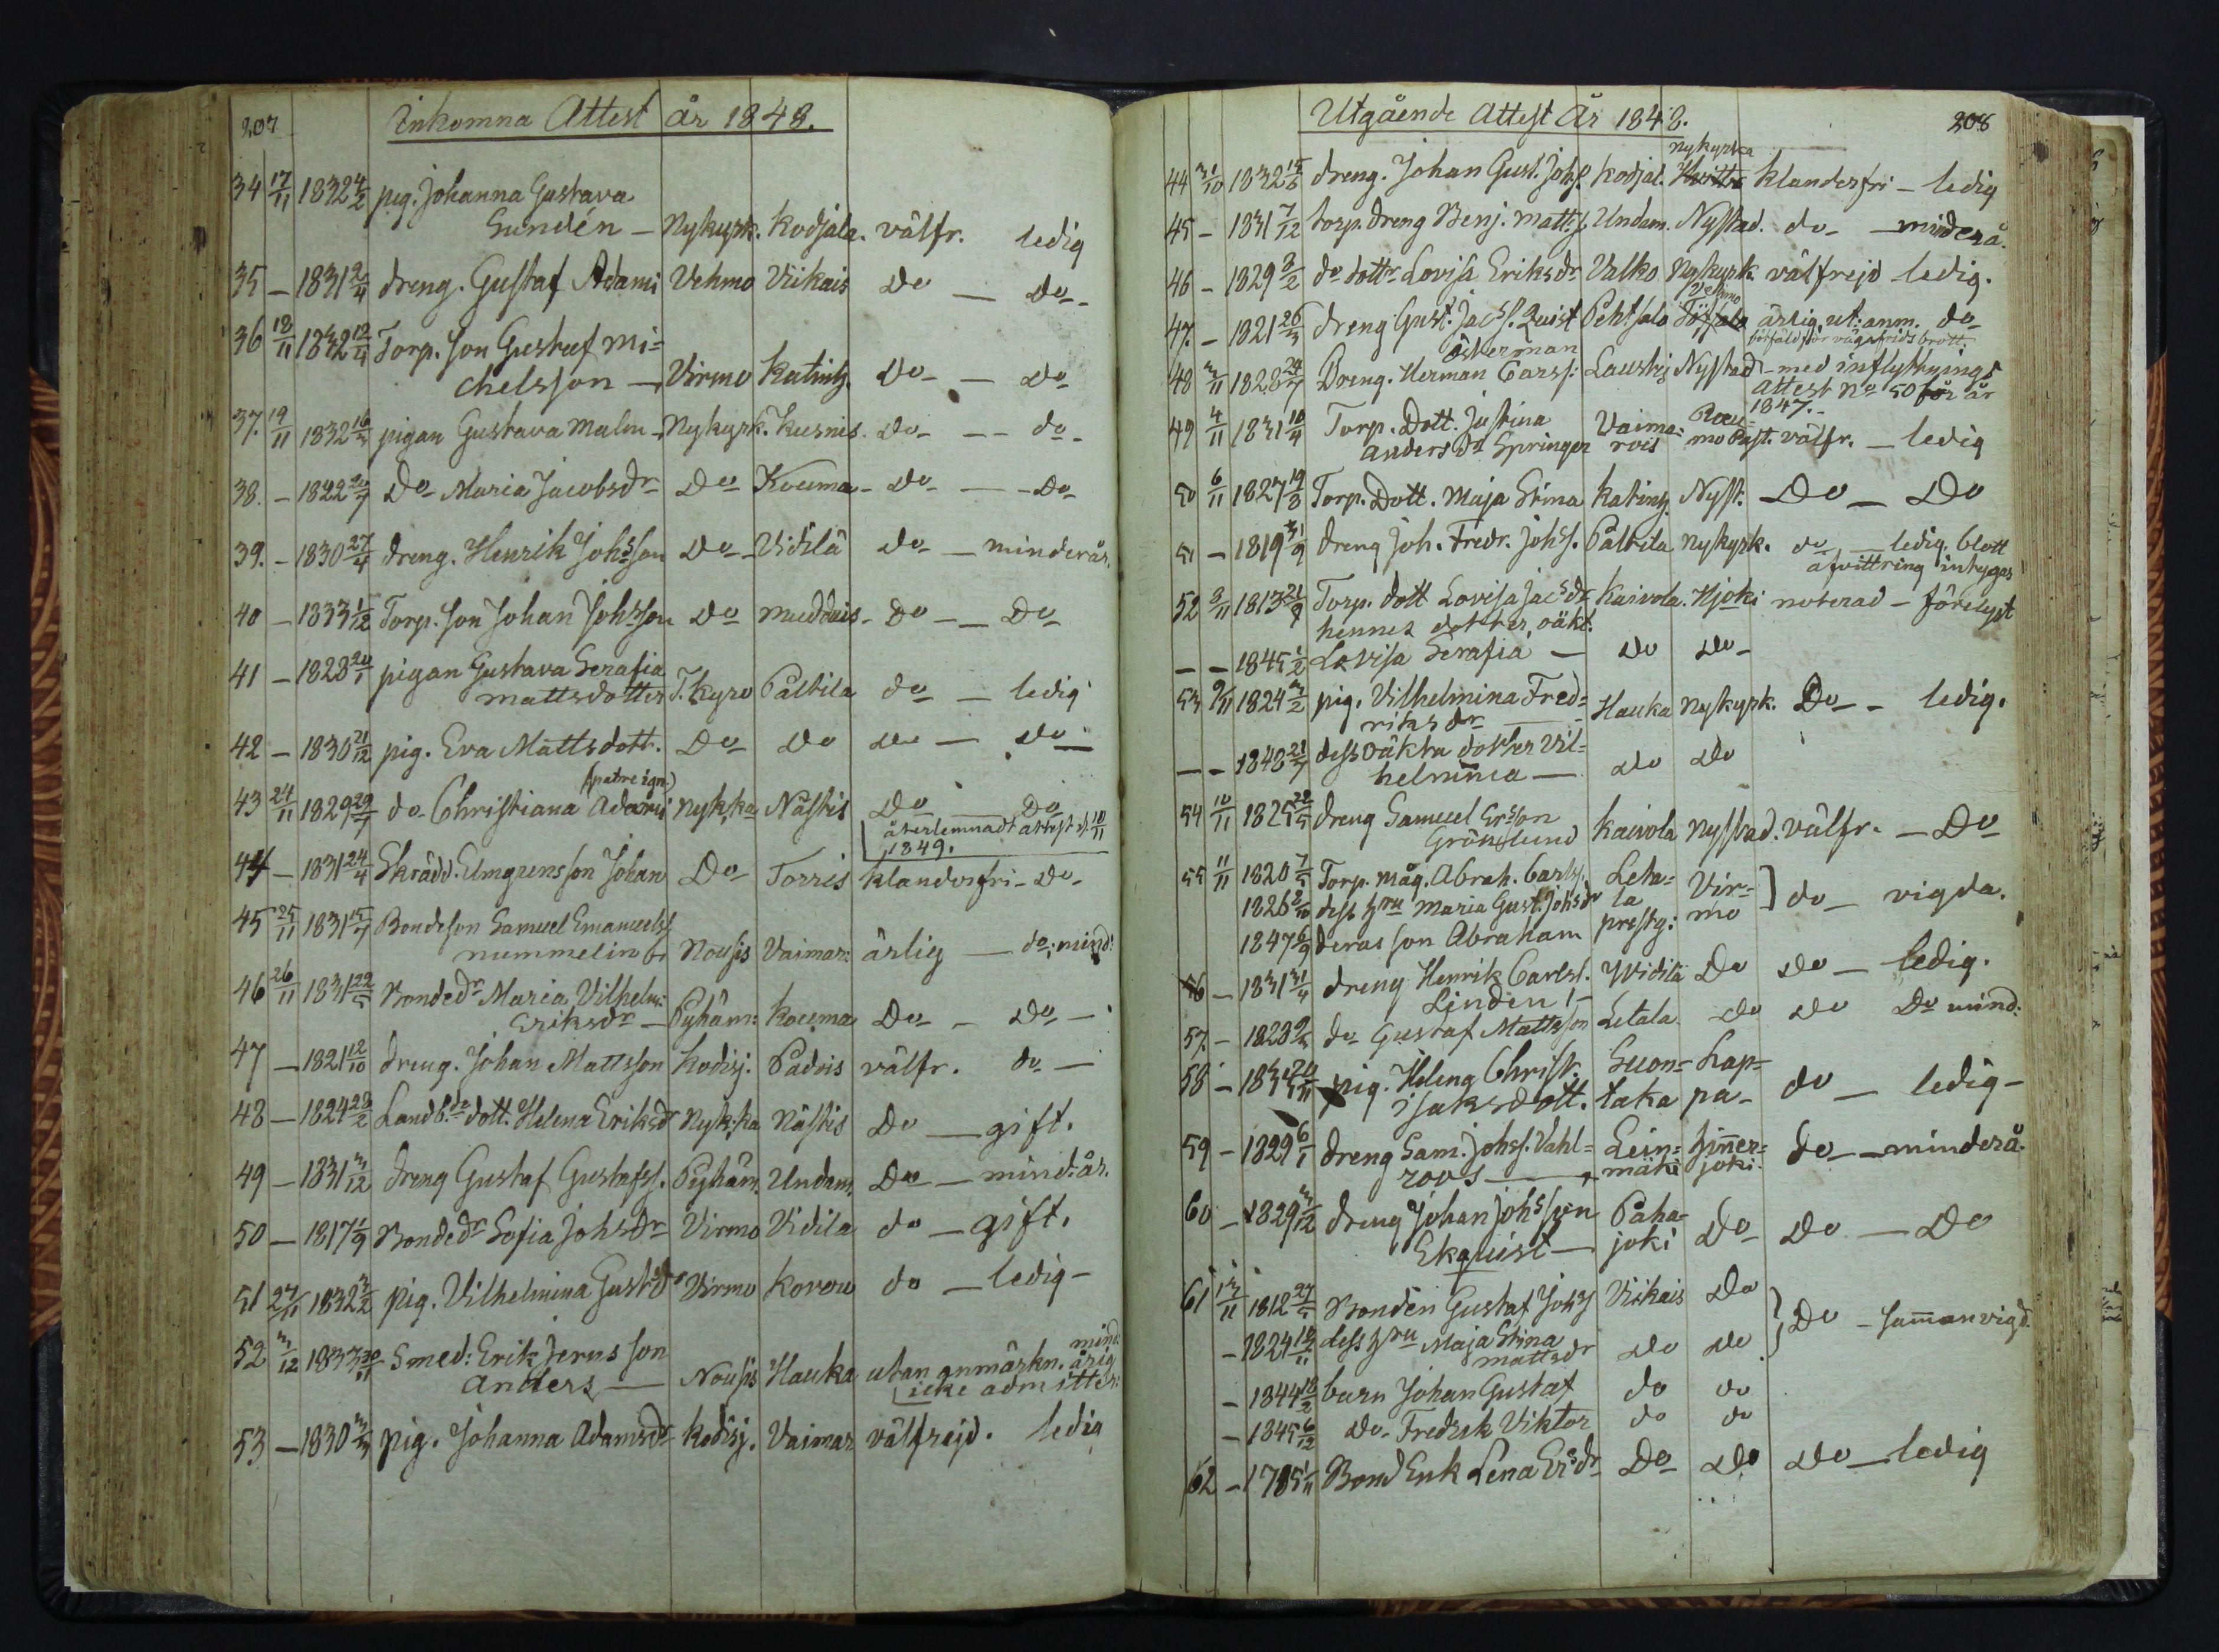 207 Inkomna Attest år 1848.
34 17/11 1832 4/2 pig. Johanna Gustava
Sundén – Nykyrk. Kodjala. välfr. ledig
35 – 1831 2/4 dreng. Gustaf Adami Vehmo Viikais do – do –
36 18/11 1832 12/4 Torp. son Gustaf Mi=
chelsson – Virmo Katinh. do – – do
37. 19/11 1832 16/3 pigan Gustava Malm – Nykyrk. Kusnis. do – – do –
38. – 1822 20/7 do Maria Jacobsdr do Kouma – do – – do
39. – 1830 27/4 dreng. Henrik Johsson do – Vidilä do – minderår.
40 – 1833 1/12 Torp. son Johan Johsson do Muddais – do – – do
41 – 1828 20/1 pigan Gustava Serafia
Mattsdotter T. kyro Paltila do – ledig
42 – 1830 21/12 pig. Eva Mattsdott. do do do – do
(patre ign)
43 24/11 1829 29/7 do Christiana Adami Nyk,ka Nästis do – do
återlemnadt attest d. 10/11
1849.
44 – 1831 24/4 Skrädd. Elmgrens son Johan do Torris klanderfri – do –
45 25/11 1831 15/7 Bondeson Samuel Emanuelss
Nummelin Nousis Vaimar: ärlig – do; mind:
46 26/11 1831 22/5 Bondedr Maria Vilhelm:
Eriksdr – Pyhäm: Kouma do – do –
47 – 1821 12/10 dreng. Johan Mattsson Kodisj. Padois välfr. do –
48 – 1824 28/2 Landb.de dott. Helena Eriksdr Nyk,ka Nästis do – gift.
49 – 1831 3/12 dreng Gustaf Gustafss. Pyhäm. Undam. do – mind: år.
50 – 1817 1/9 Bondedr Sofia Johsdr Virmo Vidila do – gift.
51 27/11 1832 3/2 pig. Vilhelmina Gustdr Virmo Korvou do – ledig –
52 3/12 1833 Smed: Erik Jerns son mind:
Anders – Nousis Hauka utan anmärkn. årig
icke admitter:
53 – 1830 3/3 pig. Johanna Adamsdr Kodisj. Vaimar välfrejd. ledig
Utgående Attest År 1848. 208
Nykyrka
44 31/10 1832 15/6 dreng. Johan Gust. Johs. Kodjal. klanderfri – ledig
45 – 1831 7/12 torp. dreng Benj. Matts. Undam. Nystad. do – minderå.
46 – 1829 3/2 do dottr Lovisa Eriksdr Valko Nykyrk. välfrejd ledig.
Vehmo
47. – 1821 26/3 dreng Gust. Jacss. Quist Pehtsalo ärlig, ut: anm. do
bötfäld för vägafrids brott.
Österman
48 3/11 1828 24/7 Dreng. Herman Carss: Laustis Nystad – med inflyttnings
Attest No 50 för år
1847. –
49 4/11 1831 10/4 Torp. Dott. Justina Vaima= Rau=
Anders dr Springer rois mo Past. välfr. – ledig
50 6/11 1827 19/3 Torp. Dott. Maja Stina Katinh. Nyst. – do – do
51 – 1819 3/9 dreng Joh. Fredr. Johs. Paltila Nykyrk. do – ledig. blott
afvittring intygas
52 8/11 1813 21/9 Torp. dott Lovisa Jacsdr Kaivola. Hjoki noterad – förelyst
hennes dotter, oäkt:
– – 1845 1/2 Lovisa Serafia – do do –
53 9/11 1824 3/2 pig. Vilhelmina Fred=
riksdr – Hauka Nykyrk. do – – ledig.
– – 1848 21/7 dess oäkta dotter Vil=
helmina – do do
54 10/11 1825 28/5 dreng Samuel Ersson
Grönlund Kaivola Nystad. välfr. – do
55 11/11 1820 7/5 Torp. måg. Abrah. Carls. Leta= Vir=
1826 2/10 dess hru Maria Gust. Johsdr la mo ] do – vigda.
1847 6/9 deras son Abraham prestg:
56 – 1831 3/4 dreng Henrik Carlss. Widilä do do – ledig.
Lindén –
57. – 1828 do Gustaf Mattsson Letala. do do do mind:
58 – pig. Helena Christ. Suon= Lap=
Isaksdott. taka pa – do – ledig –
59 – 1829 6/1 dreng Sam. Johss. Vahl= Lein= Hinner=
roos – mäki joki. do – minderå.
60 – 1829 3/12 dreng Johan Johsson Paha=
Ekquist – joki do do – do
61 13/11 1812 27/5 Bonden Gustaf Johss Viikais do
– 1824 12/11 dess hru Maja Stina
Mattsdr do do } do – samanvigd.
– 1844 18/2 barn Johan Gustaf do do
– 1845 6/12 do – Fredrik Viktor do do
62 – 1785 1/11 Bond Enk Lena Ersdr do do do – ledig